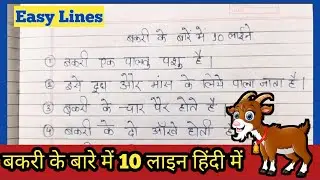 Easy Lines
बकरी के बारे में 10 लाईने
① बकरी एक पालतू पशु है।
② इसे दुध और मांस के लिये पाला जाता है।
③ बकरी के चार पैर होते है
④ बकरी के दो आँखे होती
बकरी के बारे में 10 लाइन हिंदी में